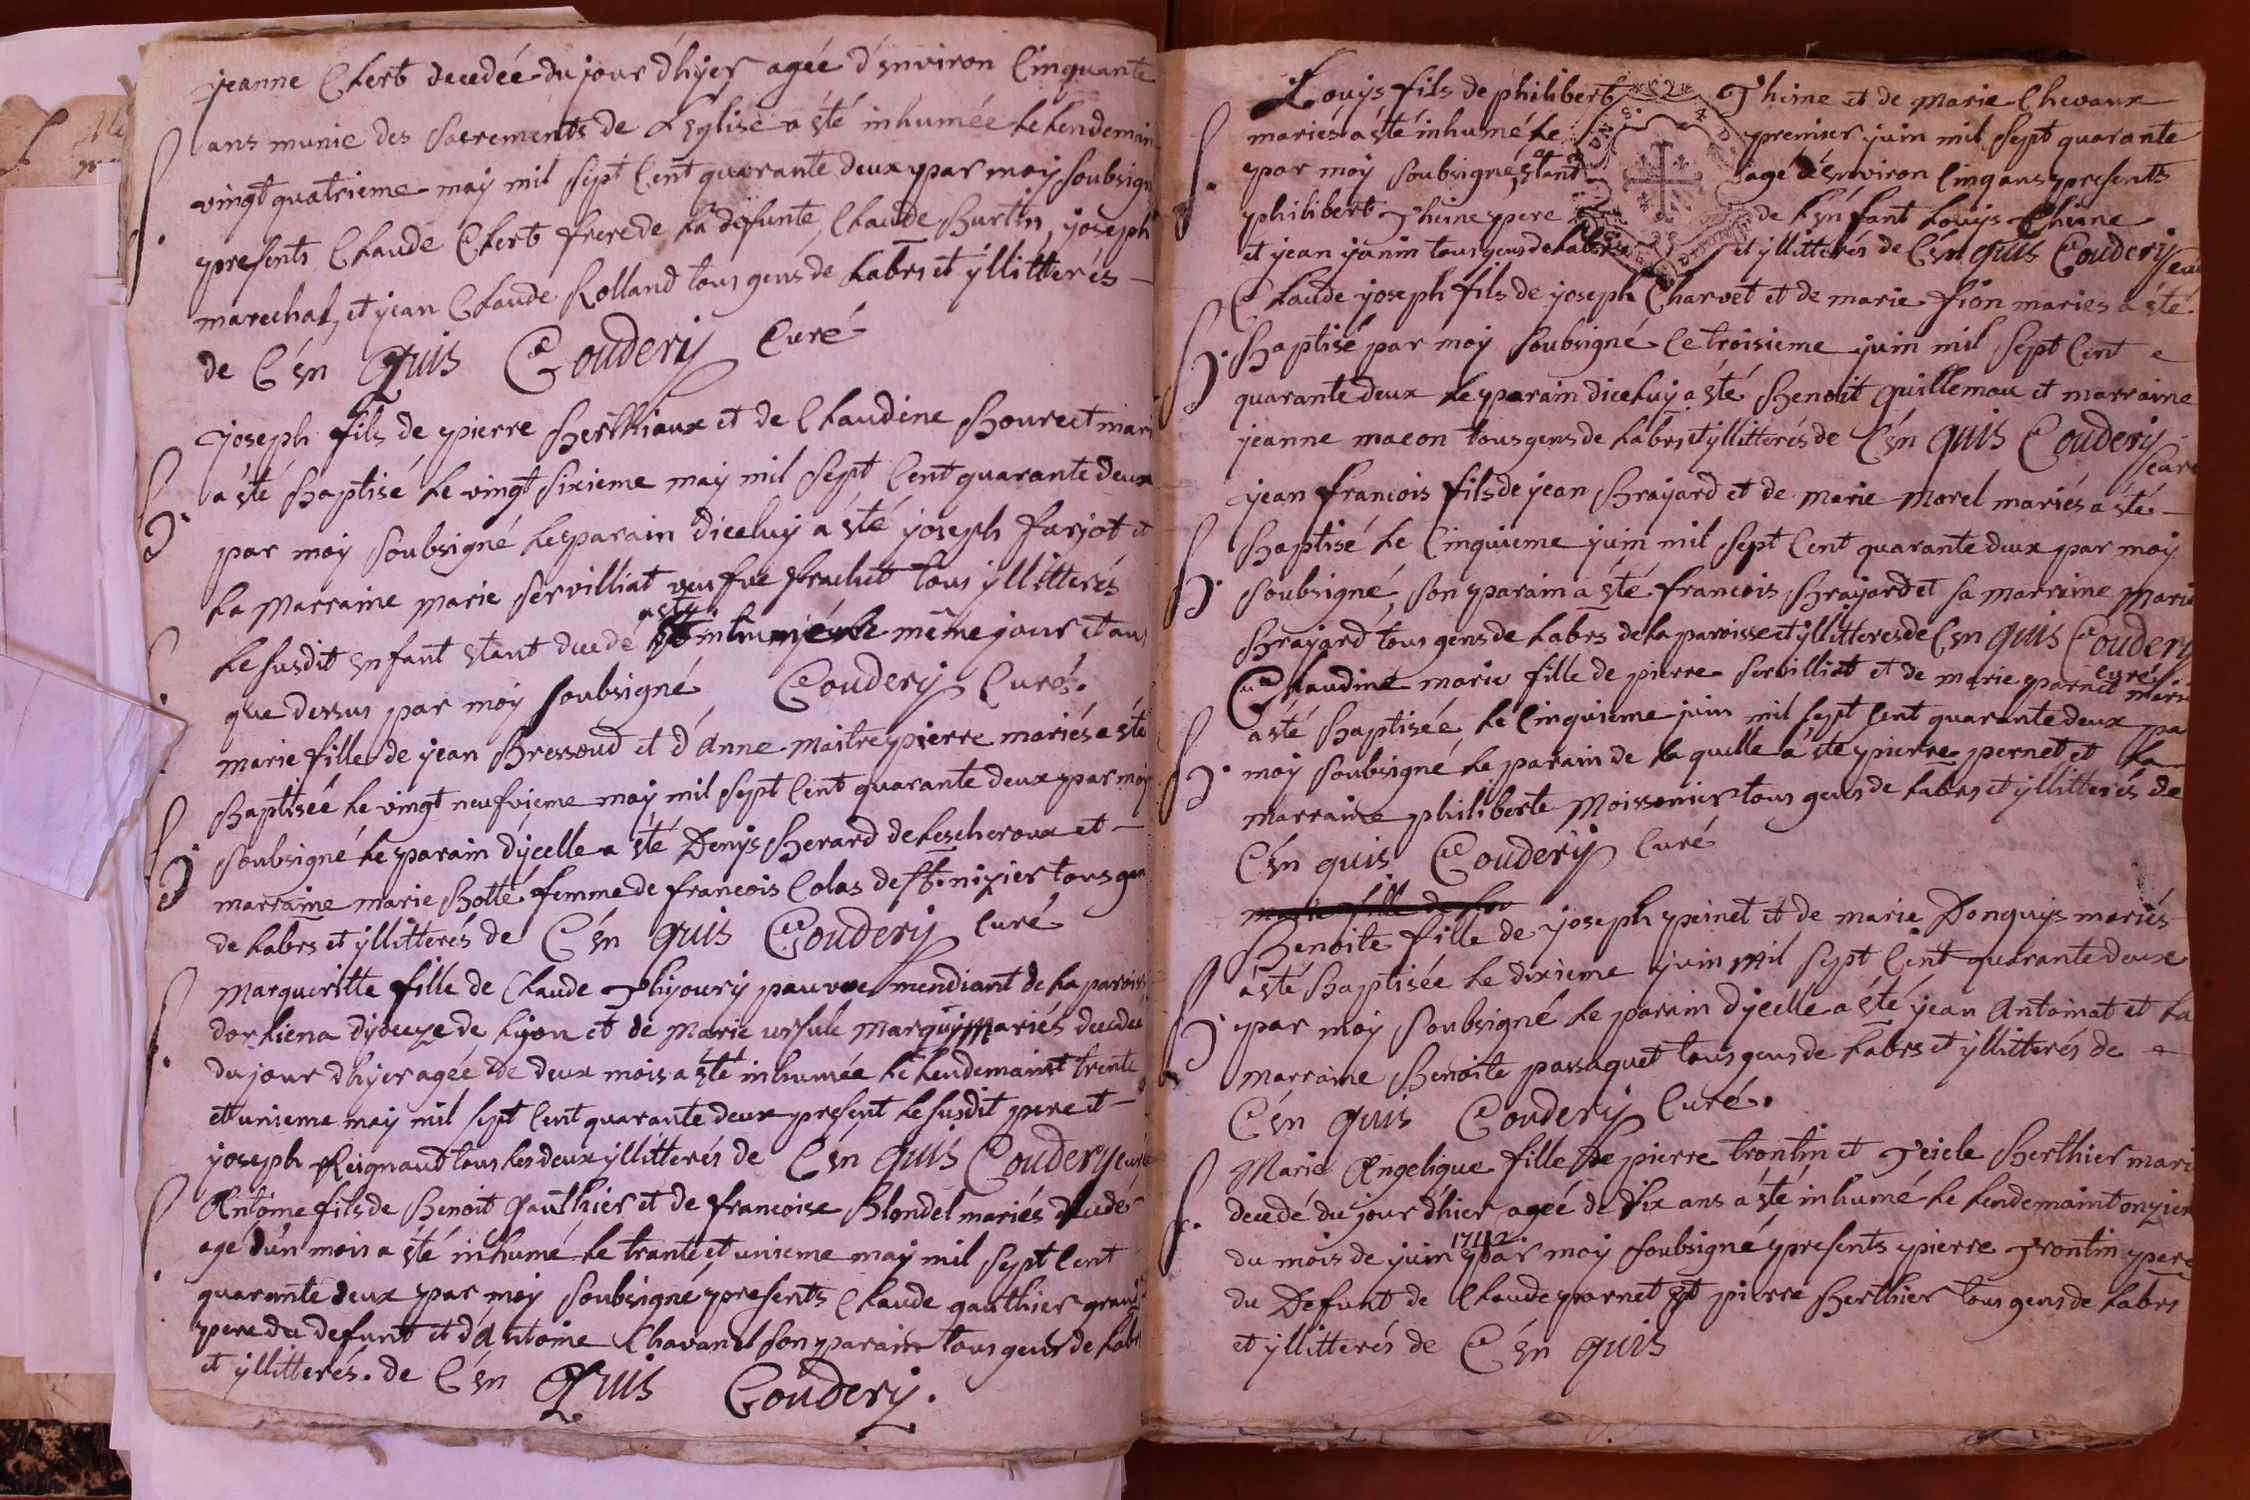 jeanne Chert decedée du jour d'hyer agée d'environ Cinquante
ans munie des Sacrements de L'eglise a été inhumée le Lendemain
vingt quatrieme may mil sept Cent quarante deux par moy soubsigné
presents Claude Chert frere de La defunte, Claude Burtin, joseph
marechal, et jean Claude Rolland tous gens de Labrs et yllitterés
de C én quis Coudery Curé
joseph fils de pierre Berthiaux et de Claudine Bourcet mari
a été Baptisé Le vingt sixieme may mil sept Cent quarante deux
par moy soubsigné Le parain diceluy a été joseph farjot et
La Marraine marie servilliat veufve frachet tous yllitterés
Le susdit enfant etant decedé a été inhumé le même jour et an
que dessus par moy soubsigné Coudery Curé.
marie fille de jean Bressoud et d'anne maitrepierre mariés a été
Baptisée Le vingt neufvieme may mil sept Cent quarante deux par moy
soubsigné Le parain d'ycelle a été Denys Berard de Lescheroux et
marraine marie Botte femme de francois Colas de St. nizier tous gens
de Labrs et yllitterés de C én quis Coudery Curé
Margueritte fille de Claude Thijoury pauvre mendiant de la paroisse
dorliena dyoceze de Lyon et de Marie ursule Marquy mariés decedee
du jour d'hyer agée de deux mois a été inhumée le Lendemaint trente
et unieme may mil sept Cent quarante deux present Le susdit pere et
joseph Reignaud tous Les deux yllitterés de C én quis Coudery Curé
Antoine fils de Benoit Gauthier et de francoise Blondel mariés decedé
age d'un mois a été inhumé Le trante et unieme may mil sept Cent
quarante deux par moy soubsigné presents Claude gauthier grand
pere du defunt et d'Antoine Chavanel son parain tous gens de Labrs
et yllitterés. de C én quis Coudery.
Louys fils de philibert Thiene et de Marie Chevaux
mariés a été inhumé Le premier juin mil sept quarante
par moy soubsigné, etant agé d'environ Cinq ans presents
philibert Thiene pere de L'enfant Louys Thiene
et jean janin tous gens de Labrs et yllitterés de C én quis Coudery Curé
Claude joseph fils de joseph Charvet et de marie fion mariés a été
Baptisé par moy soubsigné Le troisieme juin mil sept Cent
quarante deux Le parain diceluy a été Benoit Guillemau et marraine
jeanne macon tous gens de Labrs et yllitterés de C én quis Coudery
Curé
jean francois fils de jean Brayard et de Marie Morel mariés a été
Baptisé Le Cinquieme juin mil sept Cent quarante deux par moy
soubsigné, son parain a été francois Brayard et sa marraine Marie
Brayard tous gens de Labrs de La paroisse et yllitterés de C én quis Coudery
Curé
Claudine marie fille de pierre servilliat et de marie parnet marié
a été Baptisée, Le Cinquieme juin mil sept Cent quarante deux par
moy soubsigné Le parain de La quelle a été pierre pernet et La
marraine philiberte Moissonier tous gens de Labrs et yllitterés de
C én quis Coudery Curé
Benoite fille de joseph peinet et de marie Donguys mariés
a été Baptisée Le dixieme juin mil sept Cent quarante deux
par moy soubsigné Le parain d'ycelle a été jean Antoinat et La
Marraine Benoite passaquet tous gens de Labrs et yllitterés de
C én quis Coudery Curé.
Marie Angelique fille de pierre trontin et Teicle Berthier marié
decedé du jour d'hier agée de dix ans a été inhumé Le Lendemaint onzieme
du mois de juin 1742 par moy soubsigné presents pierre Trontin pere
du Defunt de Claude parnet et pierre Berthier tous gens de Labrs
et yllitterés de C én quis